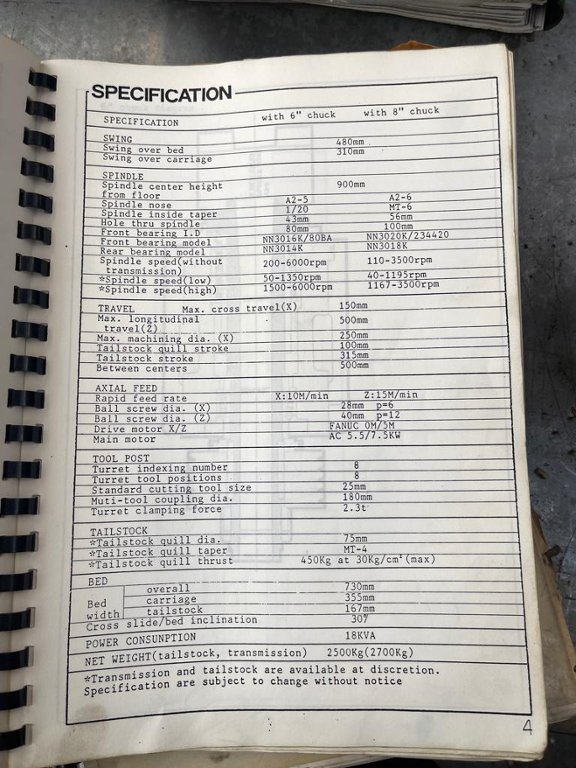 SPECIFICATION
SPECIFICATION with 6" chuck with 8" chuck
SWING
Swing over bed 480mm
Swing over carriage 310mm
SPINDLE
Spindle center height 900mm
from floor
Spindle nose A2-5 A2-6
Spindle inside taper 1/20 MT-6
Hole thru spindle 43mm 56mm
Front bearing I.D 80mm 100mm
Front bearing model NN3016K/80BA NN3020K/234420
Rear bearing model NN3014K NN3018K
Spindle speed(without 200-6000rpm 110-3500rpm
transmission)
*Spindle speed(low) 50-1350rpm 40-1195rpm
*Spindle speed(high) 1500-6000rpm 1167-3500rpm
TRAVEL Max. cross travel(X) 150mm
Max. longitudinal 500mm
travel(Z)
Max. machining dia. (X) 250mm
Tailstock quill stroke 100mm
Tailstock stroke 315mm
Between centers 500mm
AXIAL FEED
Rapid feed rate X:10M/min Z:15M/min
Ball screw dia. (X) 28mm p=6
Ball screw dia. (Z) 40mm p=12
Drive motor X/Z FANUC 0M/5M
Main motor AC 5.5/7.5KW
TOOL POST
Turret indexing number 8
Turret tool positions 8
Standard cutting tool size 25mm
Muti-tool coupling dia. 180mm
Turret clamping force 2.3t
TAILSTOCK
*Tailstock quill dia. 75mm
*Tailstock quill taper MT-4
*Tailstock quill thrust 450Kg at 30Kg/cm²(max)
BED
Bed width overall 730mm
carriage 355mm
tailstock 167mm
Cross slide/bed inclination 30°
POWER CONSUNPTION 18KVA
NET WEIGHT(tailstock, transmission) 2500Kg(2700Kg)
*Transmission and tailstock are available at discretion.
Specification are subject to change without notice
4